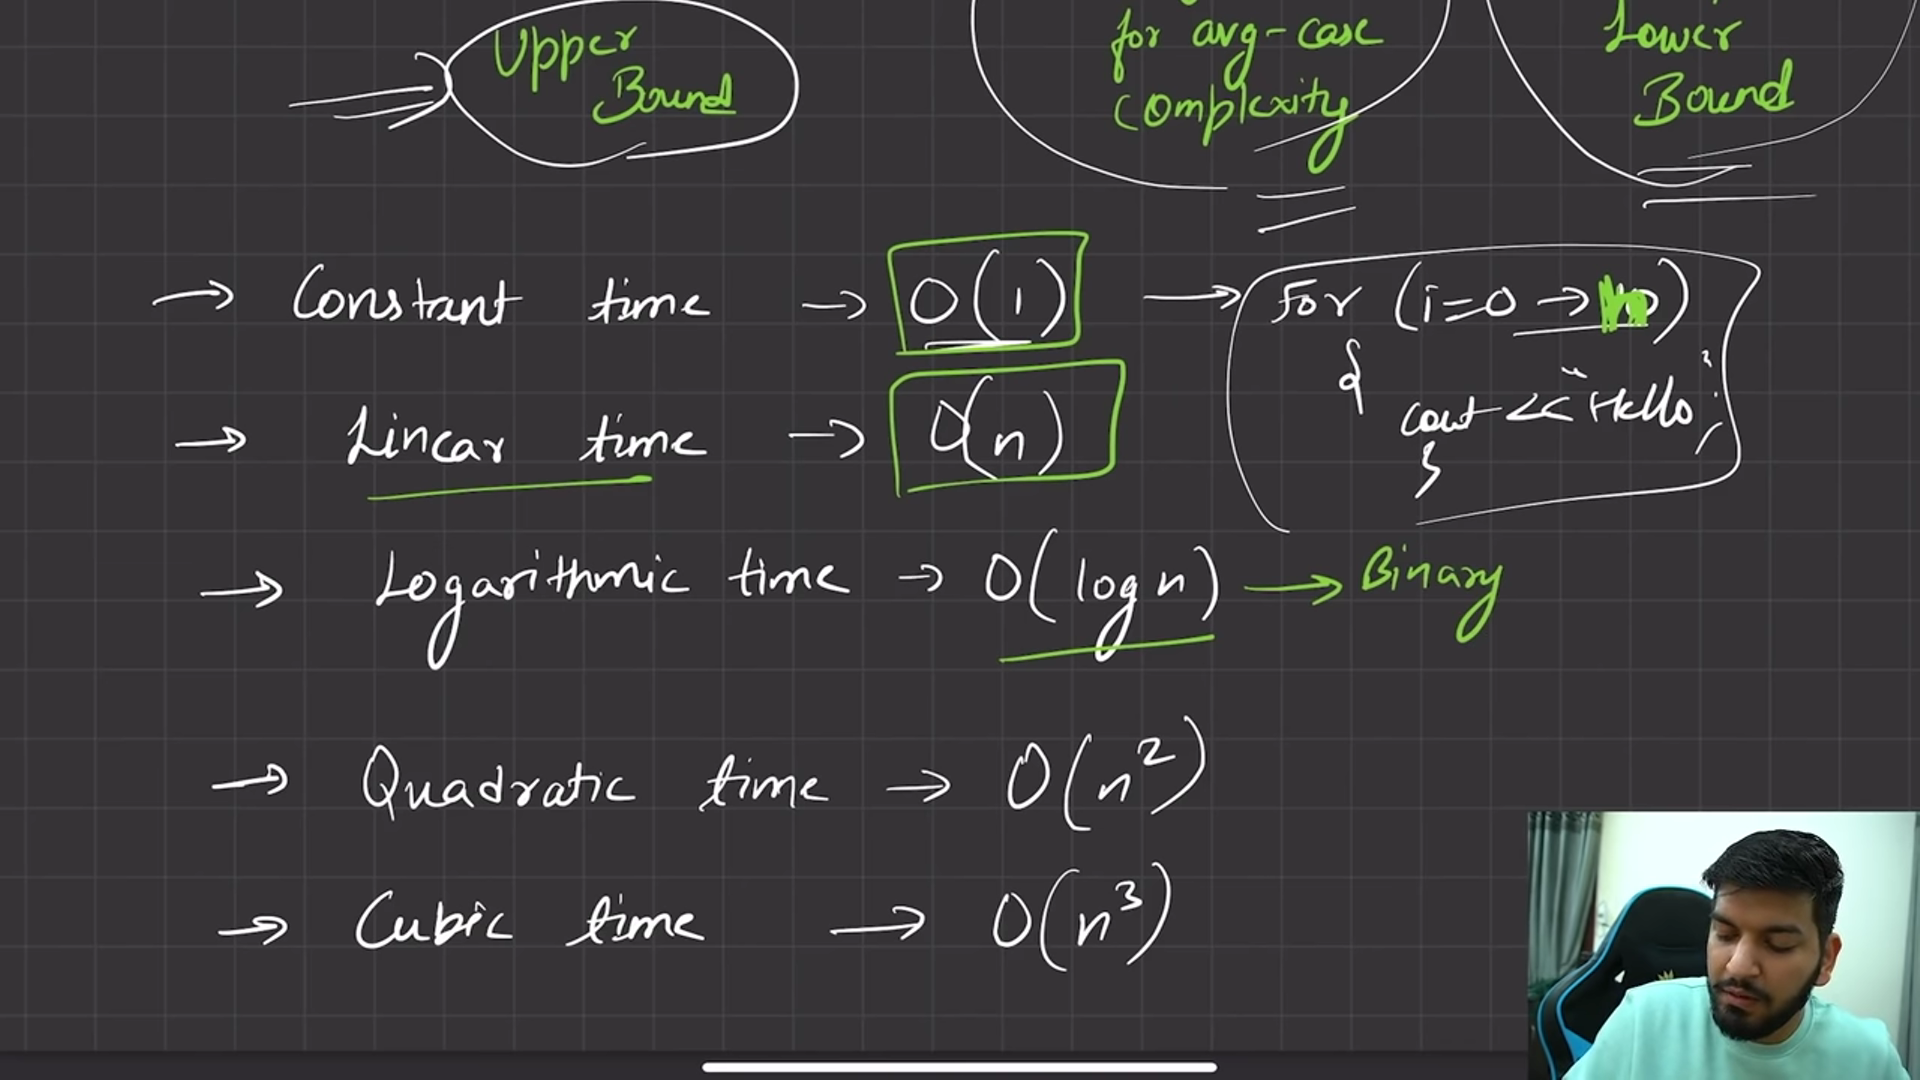 Upper
Bound
for avg-case
complexity
Lower
Bound
→ Constant time → O(1) → For (i=0 → n)
{
cout << "Hello";
}
→ Linear time → O(n)
→ Logarithmic time → O(log n) → Binary
→ Quadratic time → O(n²)
→ Cubic time → O(n³)